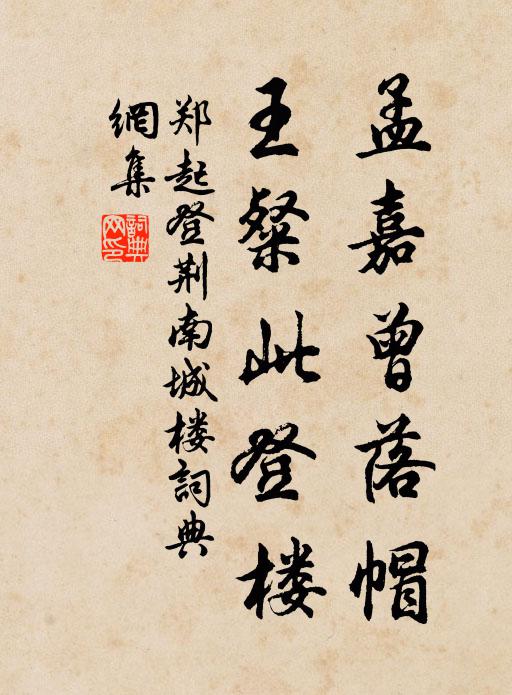 孟嘉曾落帽
王粲此登楼
郑起登荆南城楼詞典
網集
詞典網印